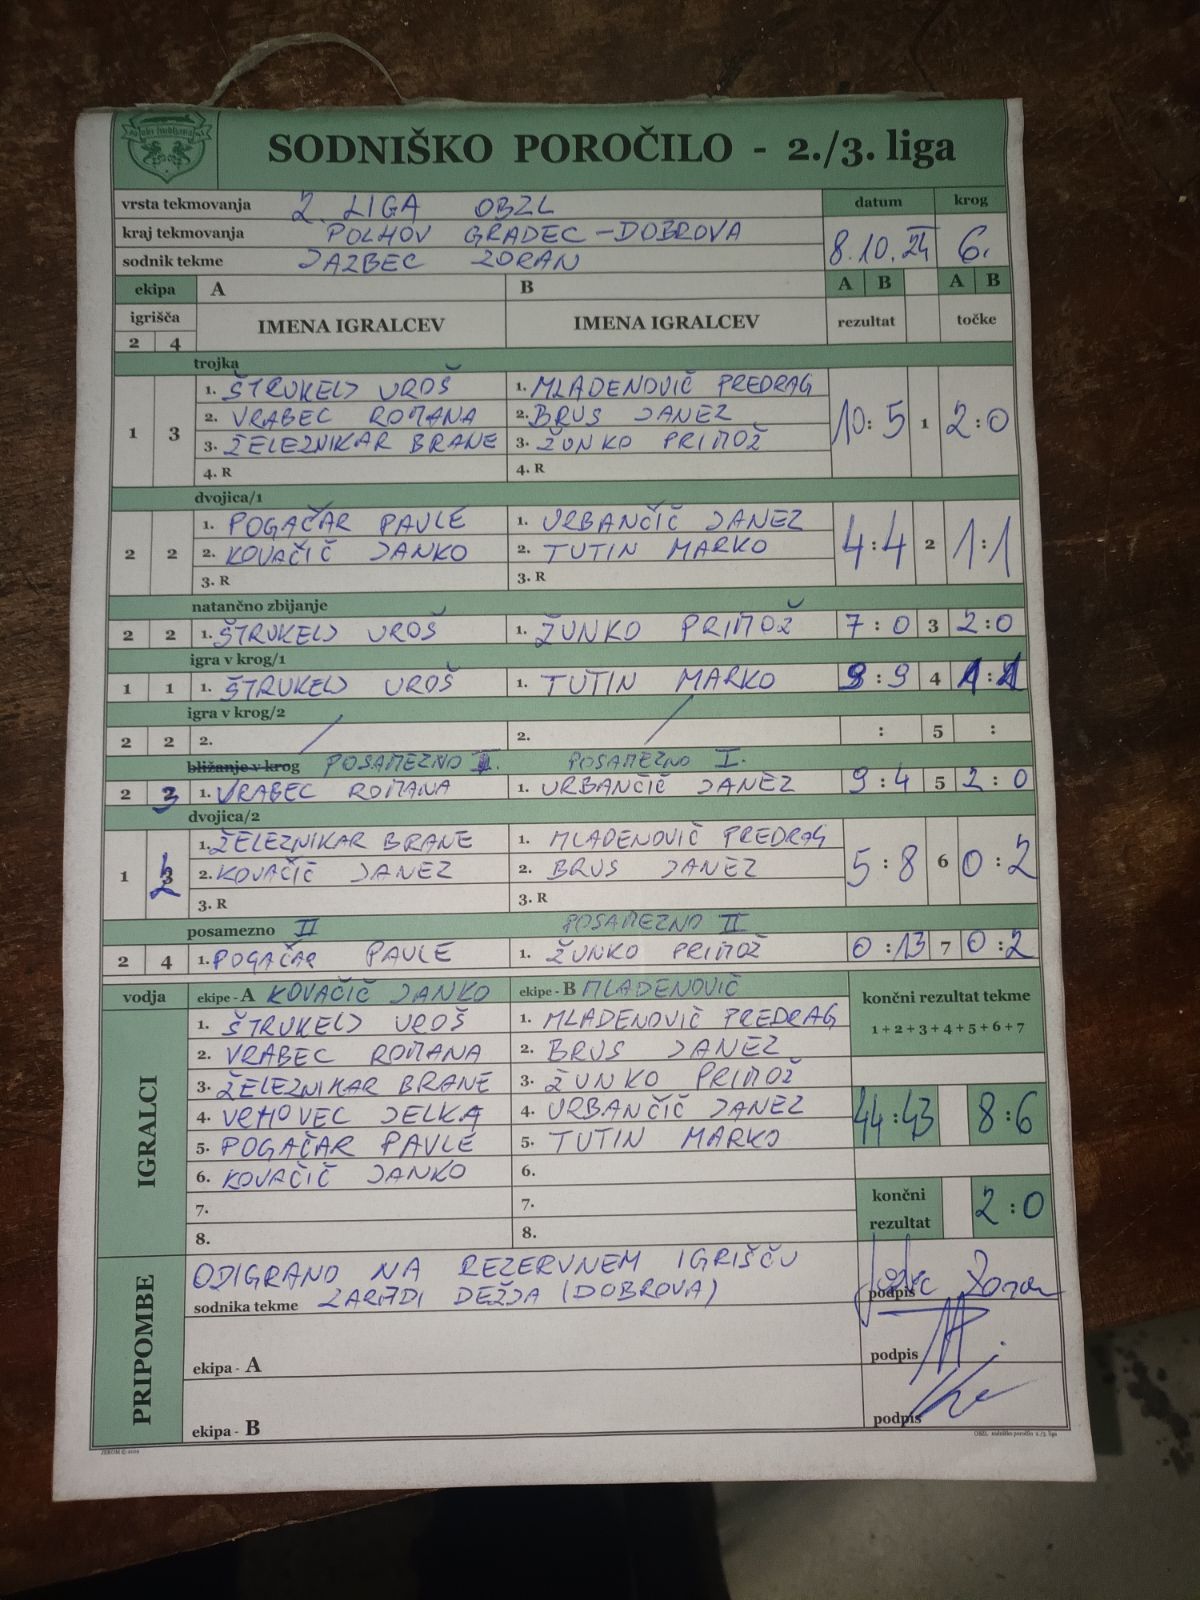 obz ljubljana
SODNIŠKO POROČILO - 2./3. liga
vrsta tekmovanja 2. LIGA OBZL datum krog
kraj tekmovanja POLHOV GRADEC - DOBROVA 8.10.24 6.
sodnik tekme JAZBEC ZORAN
ekipa A B A B A B
igrišča IMENA IGRALCEV IMENA IGRALCEV rezultat točke
2 4
trojka
1. ŠTRUKELJ UROŠ 1. MLADENOVIČ PREDRAG
2. VRABEC ROMANA 2. BRUS JANEZ
1 3 3. ŽELEZNIKAR BRANE 3. ŽUNKO PRIMOŽ 10:5 1 2:0
4. R 4. R
dvojica/1
1. POGAČAR PAVLE 1. URBANČIČ JANEZ
2 2 2. KOVAČIČ JANKO 2. TUTIN MARKO 4:4 2 1:1
3. R 3. R
natančno zbijanje
2 2 1. ŠTRUKELJ UROŠ 1. ŽUNKO PRIMOŽ 7:0 3 2:0
igra v krog/1
1 1 1. ŠTRUKELJ UROŠ 1. TUTIN MARKO 9:9 4 1:1
igra v krog/2
2 2 2. 2. : 5 :
bližanje v krog POSAMEZNO I. POSAMEZNO I.
2 3 1. VRABEC ROMANA 1. URBANČIČ JANEZ 9:4 5 2:0
dvojica/2
1. ŽELEZNIKAR BRANE 1. MLADENOVIČ PREDRAG
1 2 2. KOVAČIČ JANEZ 2. BRUS JANEZ 5:8 6 0:2
3. R 3. R
posamezno II POSAMEZNO II
2 4 1. POGAČAR PAVLE 1. ŽUNKO PRIMOŽ 0:13 7 0:2
vodja ekipe - A KOVAČIČ JANKO ekipe - B MLADENOVIČ končni rezultat tekme
1. ŠTRUKELJ UROŠ 1. MLADENOVIČ PREDRAG 1 + 2 + 3 + 4 + 5 + 6 + 7
2. VRABEC ROMANA 2. BRUS JANEZ
3. ŽELEZNIKAR BRANE 3. ŽUNKO PRIMOŽ
4. VRHOVEC JELKA 4. URBANČIČ JANEZ 44:43 8:6
IGRALCI
5. POGAČAR PAVLE 5. TUTIN MARKO
6. KOVAČIČ JANKO 6.
7. 7. končni
8. 8. rezultat 2:0
PRIPOMBE
ODIGRANO NA REZERVNEM IGRIŠČU
sodnika tekme ZARADI DEŽJA (DOBROVA) podpis Jazbec Zoran
ekipa - A podpis
ekipa - B podpis
OBZL sodniško poročilo 2./3. liga